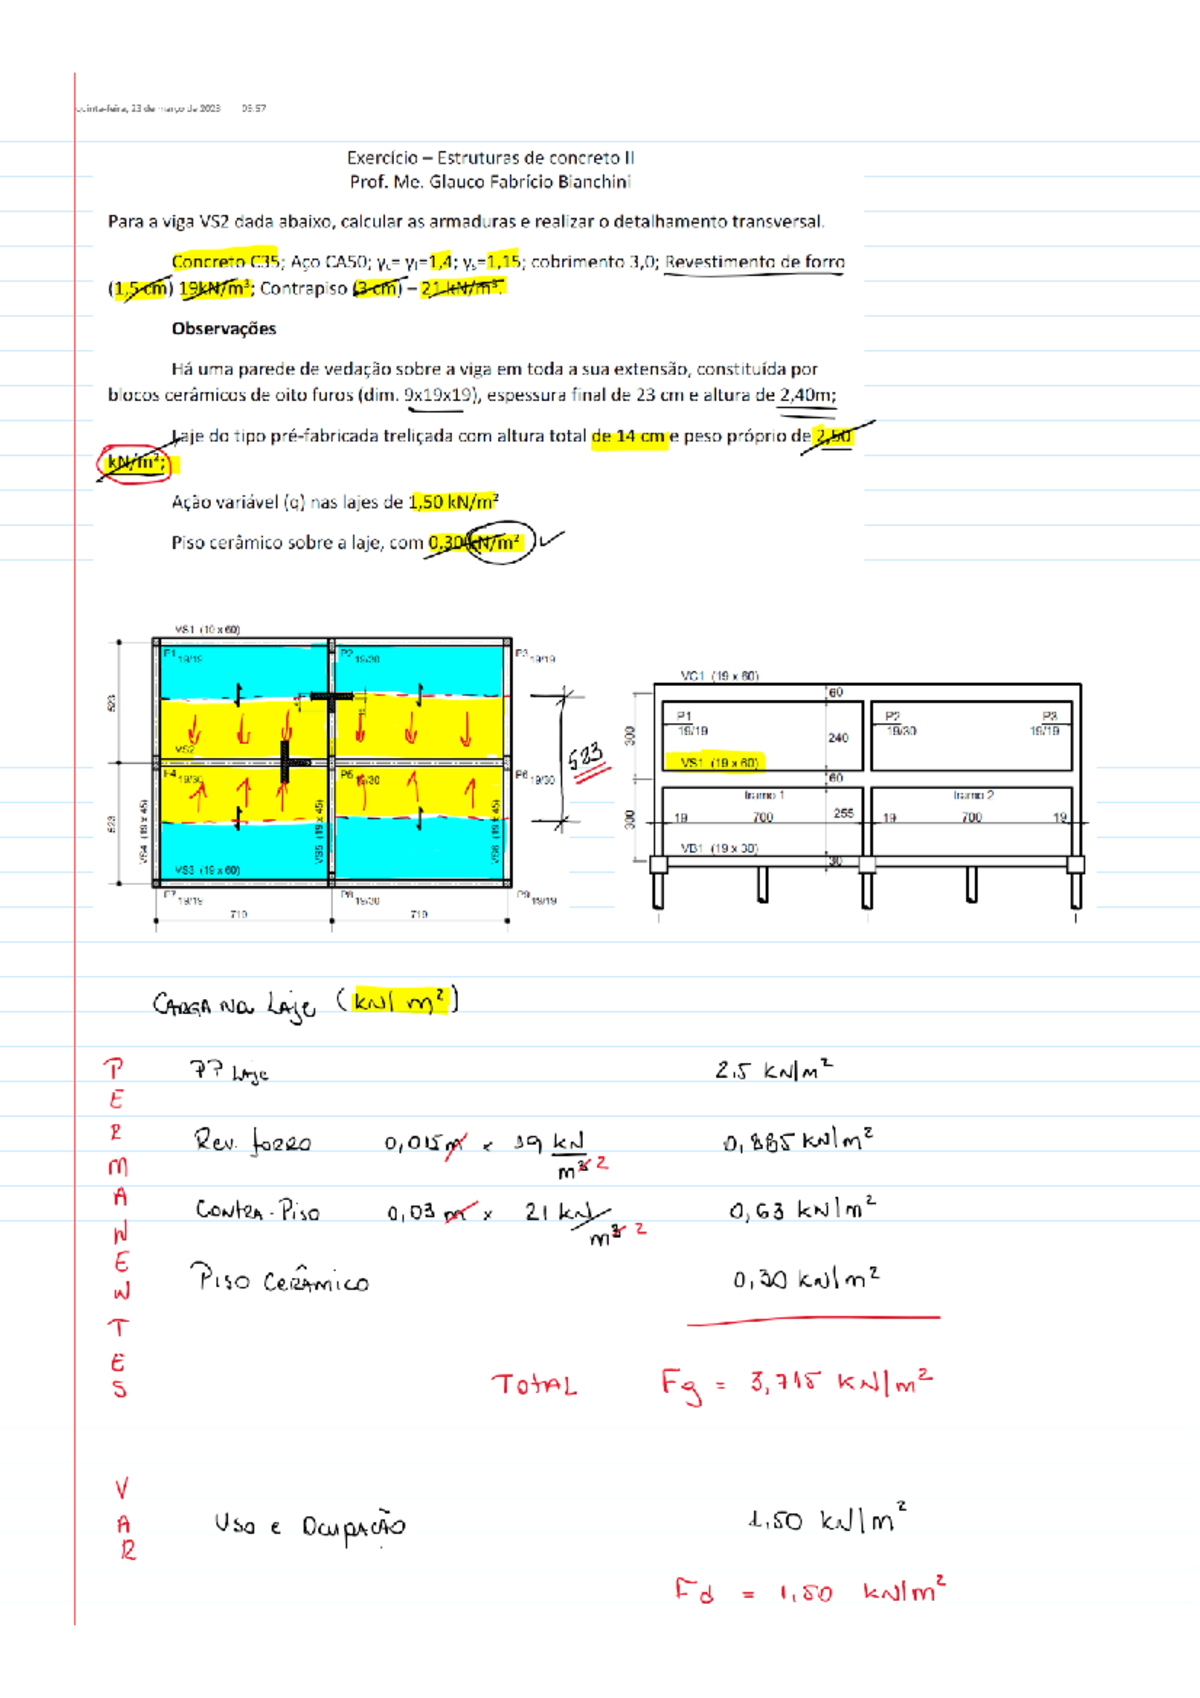 quinta-feira, 23 de março de 2023 09:57
Exercício – Estruturas de concreto II
Prof. Me. Glauco Fabrício Bianchini
Para a viga VS2 dada abaixo, calcular as armaduras e realizar o detalhamento transversal.
Concreto C35; Aço CA50; γc= γf=1,4; γs=1,15; cobrimento 3,0; Revestimento de forro
(1,5 cm) 19kN/m³; Contrapiso (3 cm) – 21 kN/m³.
Observações
Há uma parede de vedação sobre a viga em toda a sua extensão, constituída por
blocos cerâmicos de oito furos (dim. 9x19x19), espessura final de 23 cm e altura de 2,40m;
Laje do tipo pré-fabricada treliçada com altura total de 14 cm e peso próprio de 2,50
kN/m²;
Ação variável (q) nas lajes de 1,50 kN/m²
Piso cerâmico sobre a laje, com 0,30 kN/m²
VS1 (19 x 60)
P1 19/19
P2 19/30
P3 19/19
523
VS2
P4 19/30
P5 19/30
P6 19/30
523
VS4 (19 x 45)
VS5 (19 x 45)
VS6 (19 x 45)
VS3 (19 x 60)
P7 19/19
P8 19/30
P9 19/19
719
719
523
VC1 (19 x 60)
60
P1
19/19
P2
19/30
P3
19/19
300
240
VS1 (19 x 60)
60
tramo 1
tramo 2
300
19
700
255
19
700
19
VB1 (19 x 30)
30
CARGA NA LAJE (kN/m²)
PERMANENTES
PP LAJE 2.5 kN/m²
REV. FORRO 0,015m x 19 kN/m³ 2 0,885 kN/m²
CONTRA-PISO 0,03 m x 21 kN/m³ 2 0,63 kN/m²
PISO CERÂMICO 0,30 kN/m²
TOTAL Fg = 3,715 kN/m²
VAR
USO e OCUPAÇÃO 1,50 kN/m²
Fd = 1,50 kN/m²